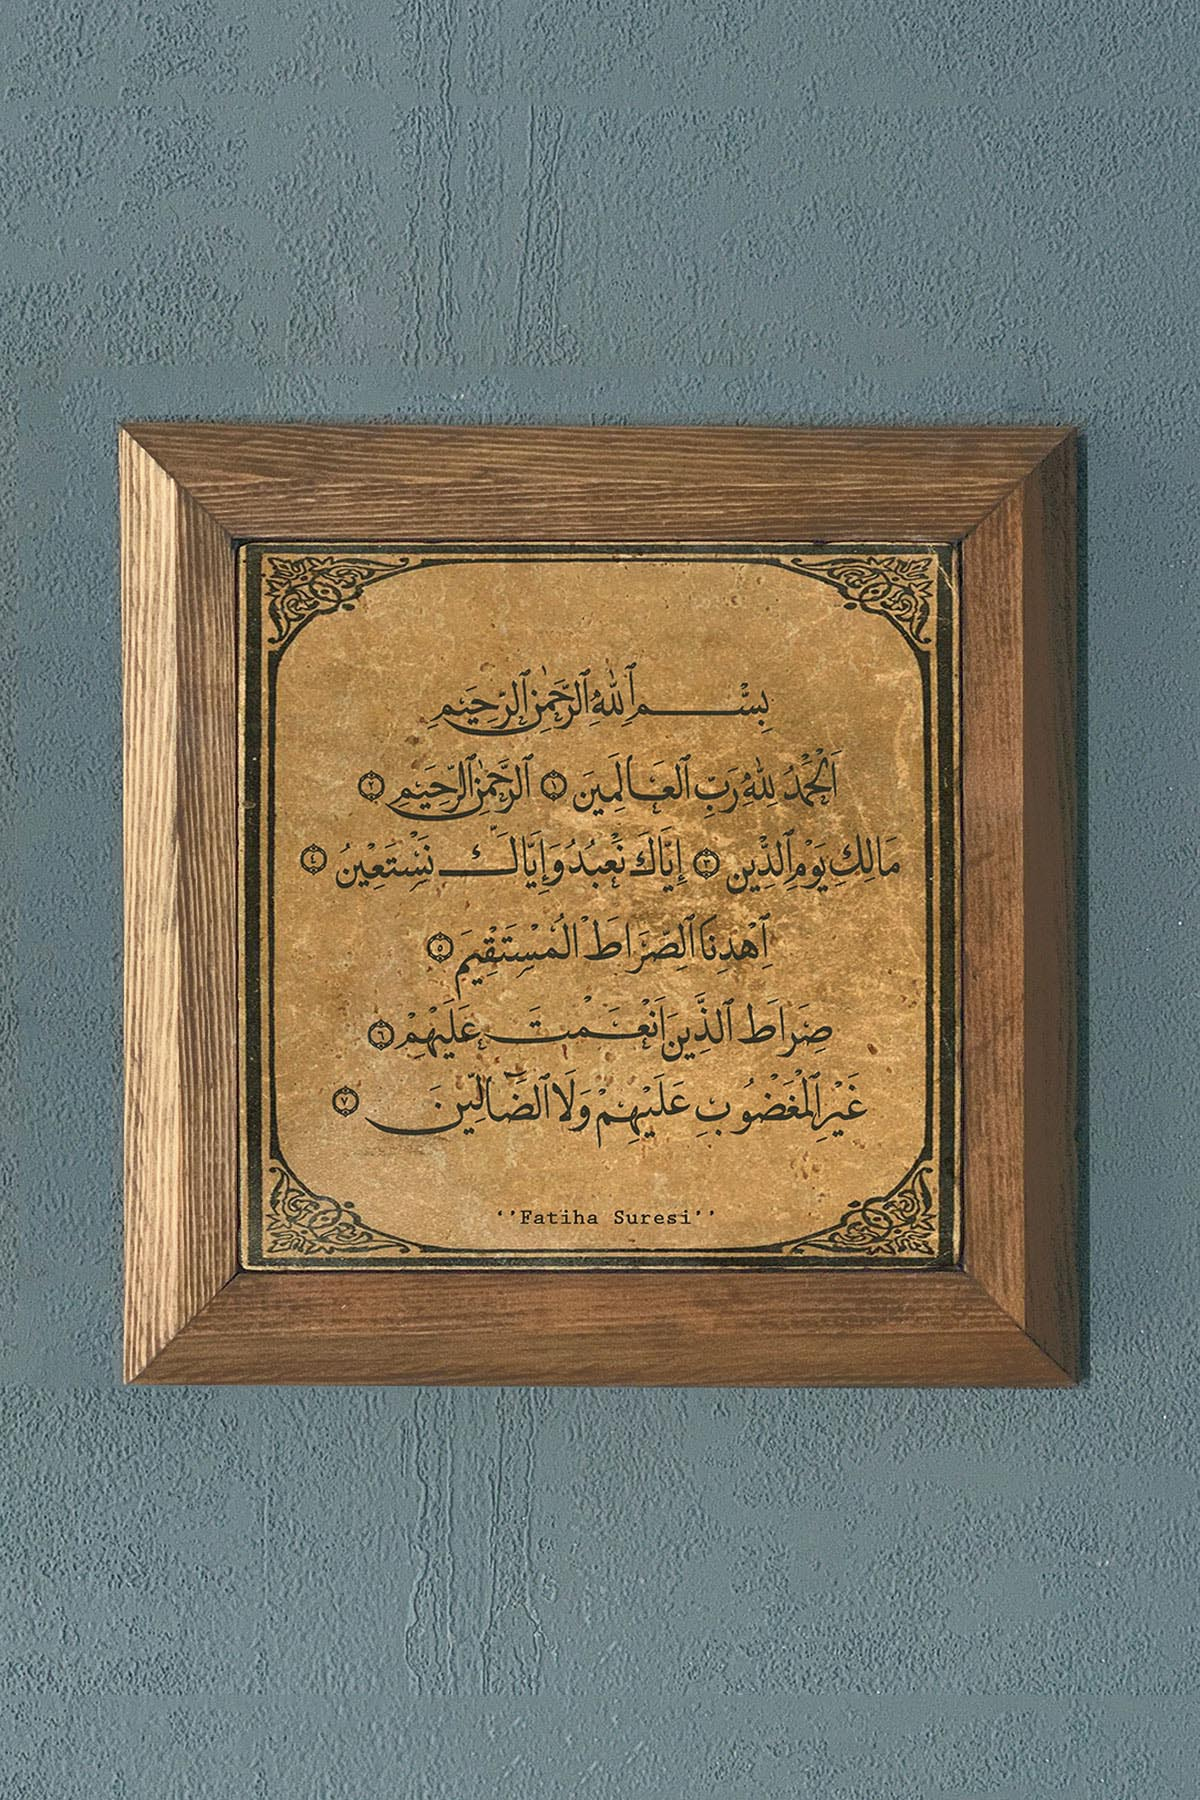 بِسْمِ ٱللّٰهِ ٱلرَّحْمٰنِ ٱلرَّحِيمِ
اَلْحَمْدُ لِلّٰهِ رَبِّ ٱلْعَالَمِينَ ١ ٱلرَّحْمٰنِ ٱلرَّحِيمِ ٢
مَالِكِ يَوْمِ ٱلدِّينِ ٣ إِيَّاكَ نَعْبُدُ وَإِيَّاكَ نَسْتَعِينُ ٤
ٱهْدِنَا ٱلصِّرَاطَ ٱلْمُسْتَقِيمَ ٥
صِرَاطَ ٱلَّذِينَ اَنْعَمْتَ عَلَيْهِمْ ٦
غَيْرِ ٱلْمَغْضُوبِ عَلَيْهِمْ وَلَا ٱلضَّالِّينَ ٧
‘’Fatiha Suresi’’